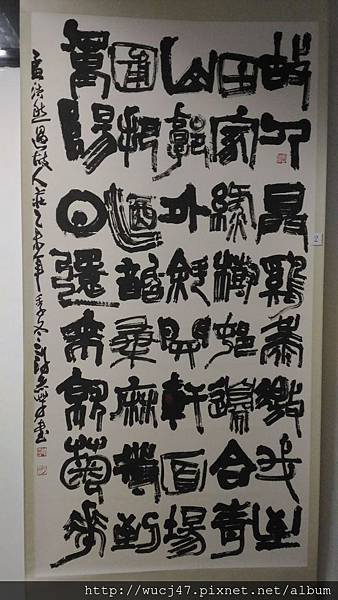 故人具雞黍邀我至
田家綠樹邨邊合青
山郭外斜開軒面場
圃把酒話桑麻待到
重陽日還來就菊花
孟浩然過故人莊乙未年季冬書
2
http://wucj47.pixnet.net/album